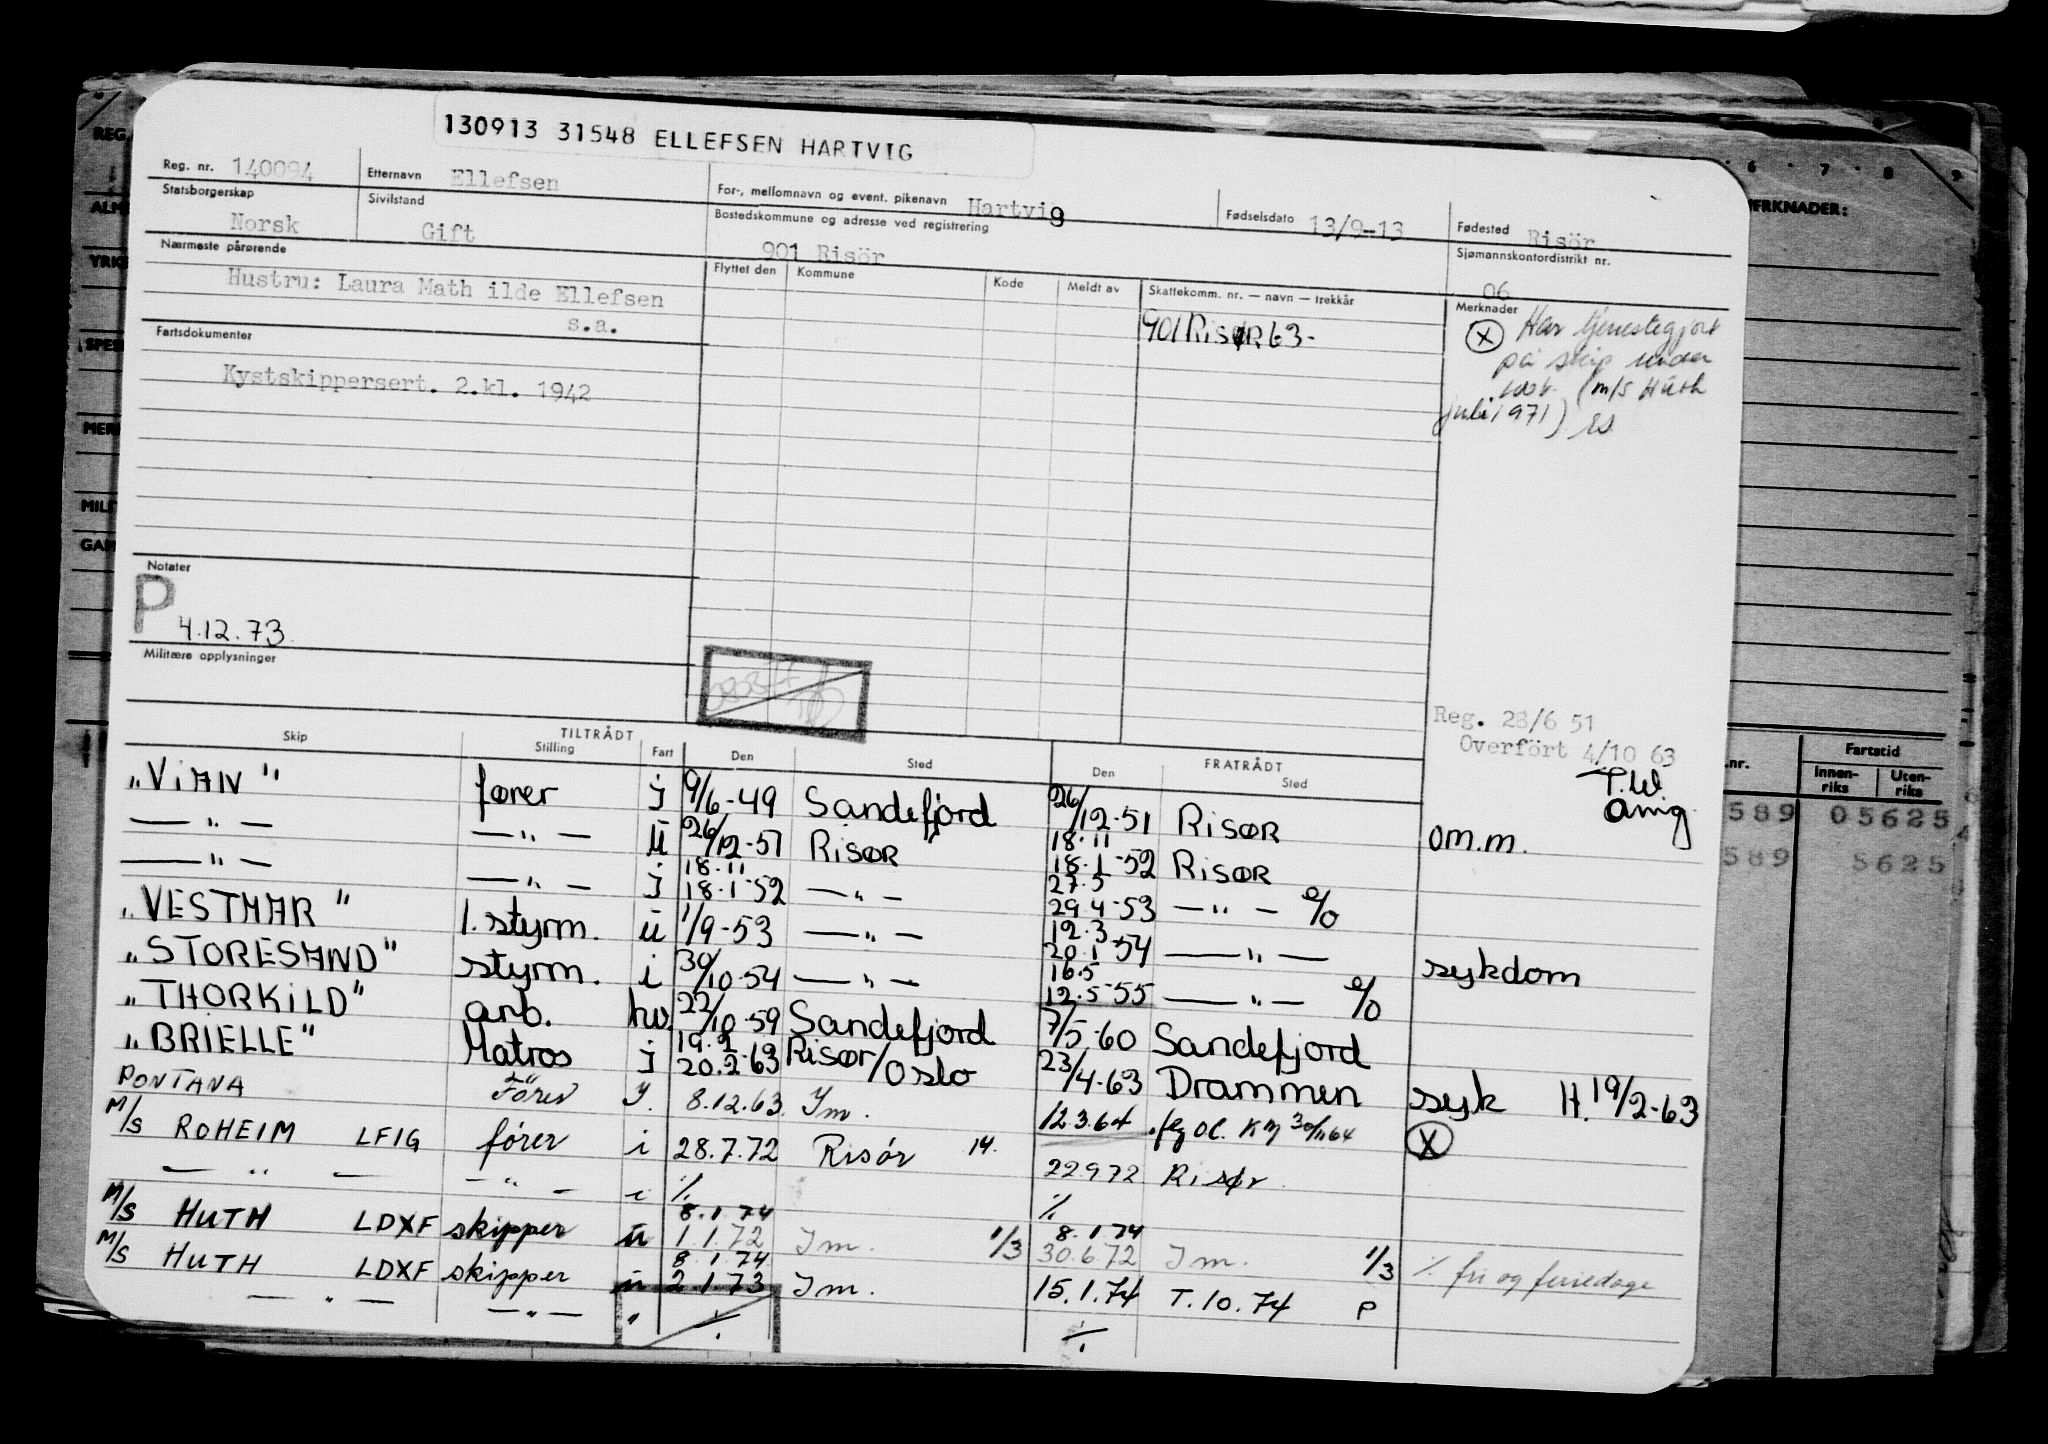 130913 31548 ELLEFSEN HARTVIG
Reg. nr. 140094 Etternavn Ellefsen For-, mellomnavn og event. pikenavn Hartvig Fødselsdato 13/9-13 Fødested Risör
Statsborgerskap Norsk Sivilstand Gift Bostedskommune og adresse ved registrering 901 Risör Sjømannskontordistrikt nr. 06
Nærmeste pårørende Flyttet den Kommune Kode Meldt av Skattekomm. nr. — navn — trekkår Merknader
Hustru: Laura Math ilde Ellefsen
s.a.
901 RisØR 63-
Ⓧ Har tjenestegjort
på skip under
(m/s Huth
juli 1971)
Fartsdokumenter
Kystskippersert. 2.kl. 1942
Notater
P 4.12.73
Militære opplysninger
Reg. 23/6 51
Overfört 4/10 63
TILTRÅDT FRATRÅDT
Skip Stilling Fart Den Sted Den Sted
„ViAN" fører j 9/6-49 Sandefjord 26/12-51 RisØR om.m.
— " — — " — u 26/12-51 RisØR 18.11 18.1-52 RisØR
— " — — " — j 18.11 18.1-52 — " — 27.5 29.4-53 — " — %
„VESTMAR" 1. styrm. u 1/9-53 — " — 12.3 20.1-54 — " — sykdom
„STORESAND" styrm. i 30/10-54 — " — 16.5 12.5-55 — " — %
„THORKiLD" arb. hv. 22/10-59 Sandefjord 7/5-60 Sandefjord
„BRIELLE" Matros j 19.2 20.2-63 Risør/Oslo 23/4-63 Drammen syk H. 19/2-63
PONTANA Förer J. 8.12.63 Jm. 12.3.64
M/S ROHEIM LFIG fører i 28.7.72 Risör 14. 22972 Risør Ⓧ
— " — — " — i ./. ./.
M/S HUTH LDXF skipper u 8.1.74 1.1.72 Jm. 1/3 8.1.74 30.6.72 Jm. 1/3 ./. fri og feriedage
M/S HUTH LDXF skipper u 8.1.74 2.1.73 Jm. 15.1.74 T.10.74 P
— " — — " — " ./. ./.
REG.
MERKNADER:
6 7 8 9
Fartstid
Innen-riks Uten-riks
589 05625
589 5625